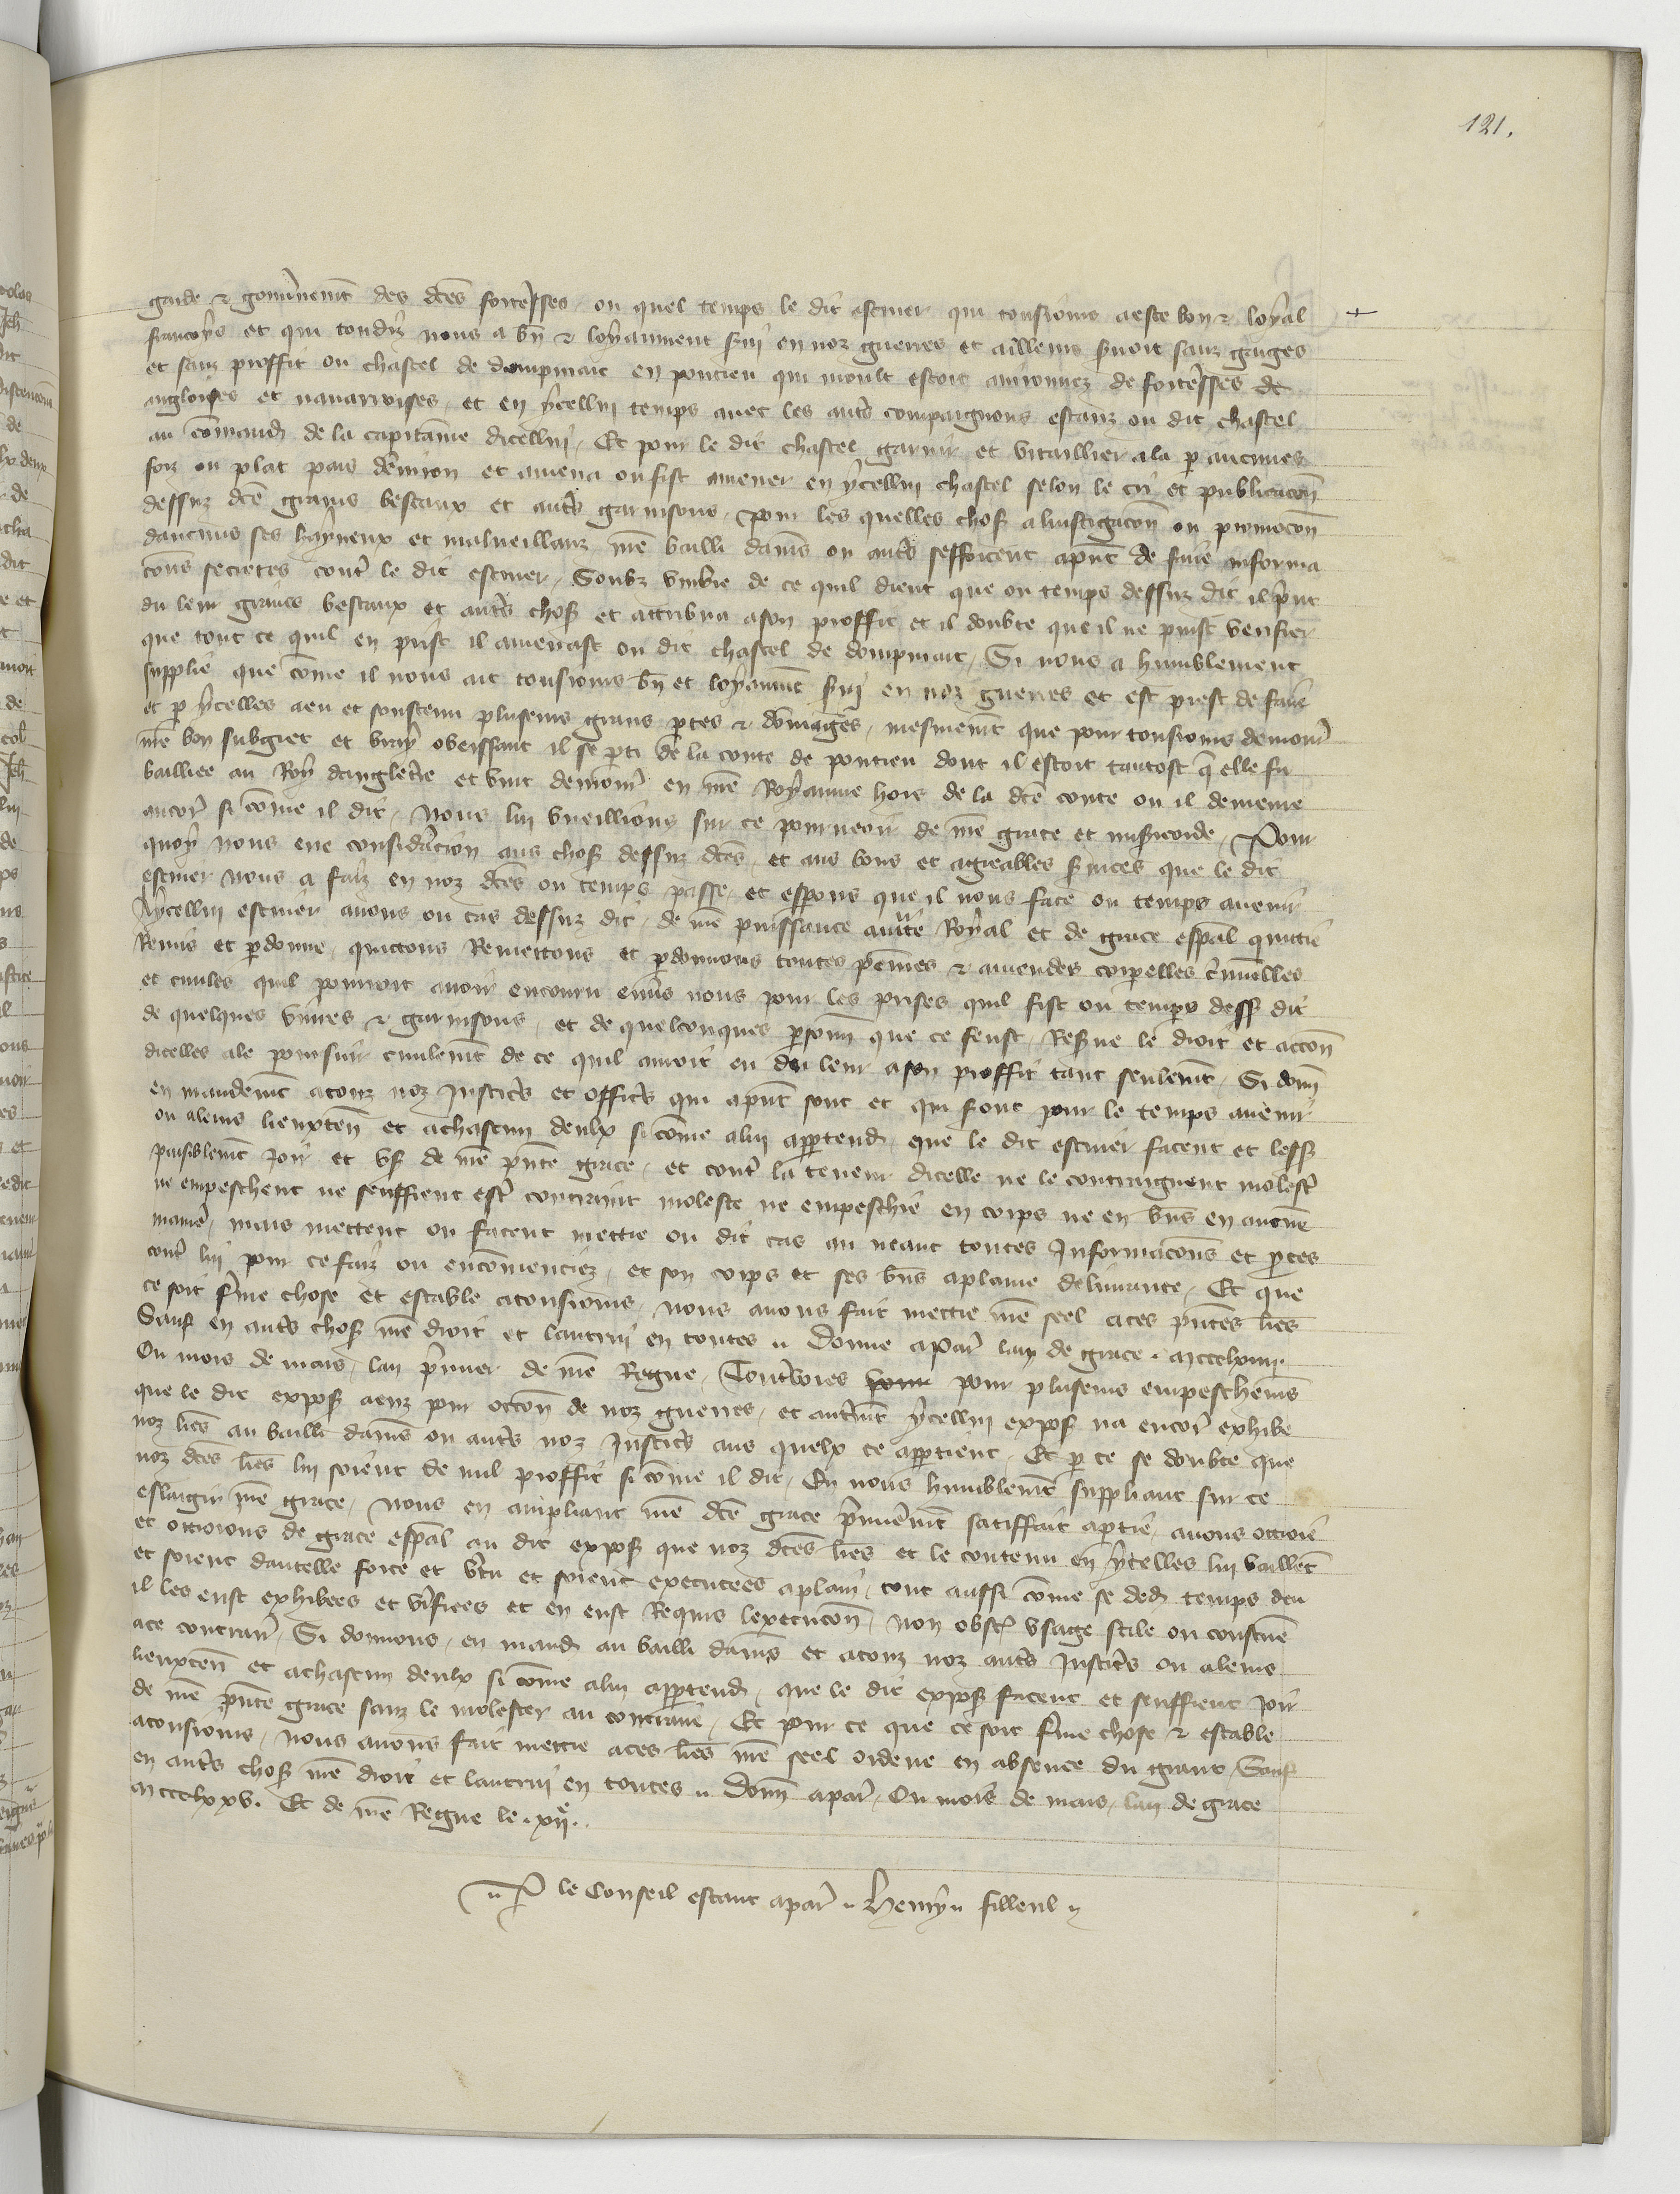 121.
garde & gouvnement des dces forteresses, ou quel temps le dit escuier qui tousiours a este bon & loyal
francoys et qui toudiz nous a bn & loyaument svi en noz guerres et ailleurs svoit sanz gages
et sanz proffit ou chastel de dompmart en pontieu qui moult estoit avironnez de forteresses
angloises et navarroises, et en ycellui temps avec les auts compaignons estanz ou dit chastel
au comand de la capitaine dicellui, Et pour le dit chastel garnir et vitaillier ala p aucunes
foiz ou plat pais denviron et amena ou fist amener en ycellui chastel selon le cri et publicacon
dessuz dce grains bestaux et auts garnisons, Pour les quelles chos a linstigacon ou promocon
daucuns ses hayneux et malveillanz, nre bailli damiens ou auts sefforcent apnt de faire informa
cons secretes contre le dit escuier, Soubz umbre de ce quil dient que ou temps dessuz dit il print
du leur grains bestaux et auts chos et attribua a son proffit et il doubte que il ne puist verifier
que tout ce quil en prist il amenast ou dit chastel de dompmart, Si nous a humblement
supplie que come il nous ait tousiours bn et loyaumt svi en noz guerres et est prest de faire
et p ycelles a eu et soustenu pluseurs grans ptes & domages, mesmemt que pour tousiours demour
nre bon subgiet et vray obeissant il se pti de la conte de pontieu dont il estoit tantost q elle fu
bailliee au Roy dangletre et vint demourer en nre Royaume hors de la dce conte ou il demeure
encor si come il dit, Nous lui vueillions sur ce pourveoir de nre grace et misericorde, Pour
quoy nous eue consideracion aus chos dessuz dces, et aus bons et agreables svices que le dit
escuier nous a faiz en noz dces ou temps passe, et espons que il nous face ou temps avenir
A ycellui escuier avons ou cas dessuz dit, de nre puissance auctte Royal et de grace espal quittie
Remis et pdonne, quittons Remettons et pdonnons toutes peines & amendes corporelles criminelles
et civiles quil pourroit avoir encouru envs nous pour les prises quil fist ou temps dess dit
de quelques vivres & garnisons, et de quelconques psonn que ce feust, Resve le droit et accon
dicelles a le poursuir civilemt de ce quil auroit eu du leur a son proffit tant seulemt, Si donn
en mandemt a touz noz Justics et officrs qui apnt sont et qui sont pour le temps avenir
ou a leurs lieuxten et a chascun deulx si come a lui apptend, que le dit escuier facent et less
paisiblemt Joir et us de nre pnte grace, et contre la teneur dicelle ne le contraignent molestr
ne empeschent ne seuffrent est contraint moleste ne empeschie en corps ne en bns en aucune
manie, mais mettent ou facent mettre ou dit cas au neant toutes Informacons et pces
contre lui pour ce faiz ou encomenciez, et son corps et ses bns a plaine delivrance, Et que
ce soit frme chose et estable a tousiours, Nous avons fait mettre nre seel a ces pntes lres
Sauf en auts chos nre droit et lautrui en toutes .. Donne a Par lan de grace . mccclxiiii .
Ou mois de mars, lan primier de nre Regne, Toutvoies pour plusieurs empeschems
que le dit expos a euz pour occon de noz guerres, et autremt ycellui expos na encor exhibe
noz lres au bailli damiens ou auts noz Justics aus quelx ce apptient, Et p ce se doubte que
noz dces lres lui soient de nul proffit si come il dit, En nous humblemt suppliant sur ce
eslargir nre grace, Nous en ampliant nre dce grace primieremt satiffait a ptie, avons ottroie
et ottroions de grace espal au dit expos que noz dces lres et le contenu en ycelles lui vaillet
et soient dautelle force et vtu et soient executees a plain, tout aussi come se ded temps deu
il les eust exhibees et vifiees et en eust Requis lexecucon, Non obst usage stile ou coustume
a ce contrair, Si donnons en mand au bailli damiens et a touz noz auts Justics ou a leurs
lieuxten et a chascun deulx si come a lui apptend, que le dit expos facent et seuffrent Joir
de nre pnte grace sanz le molester au contraire, Et pour ce que ce soit frme chose & estable
a tousiours, Nous avons fait mettre a ces lres nre seel ordene en absence du grant, Sauf
en auts chos nre droit et lautrui en toutes .. Donn a par, Ou mois de mars, lan de grace
mccclxxv. Et de nre Regne le .xije.
.. P le Conseil estant a par .. Henry .. filleul ..